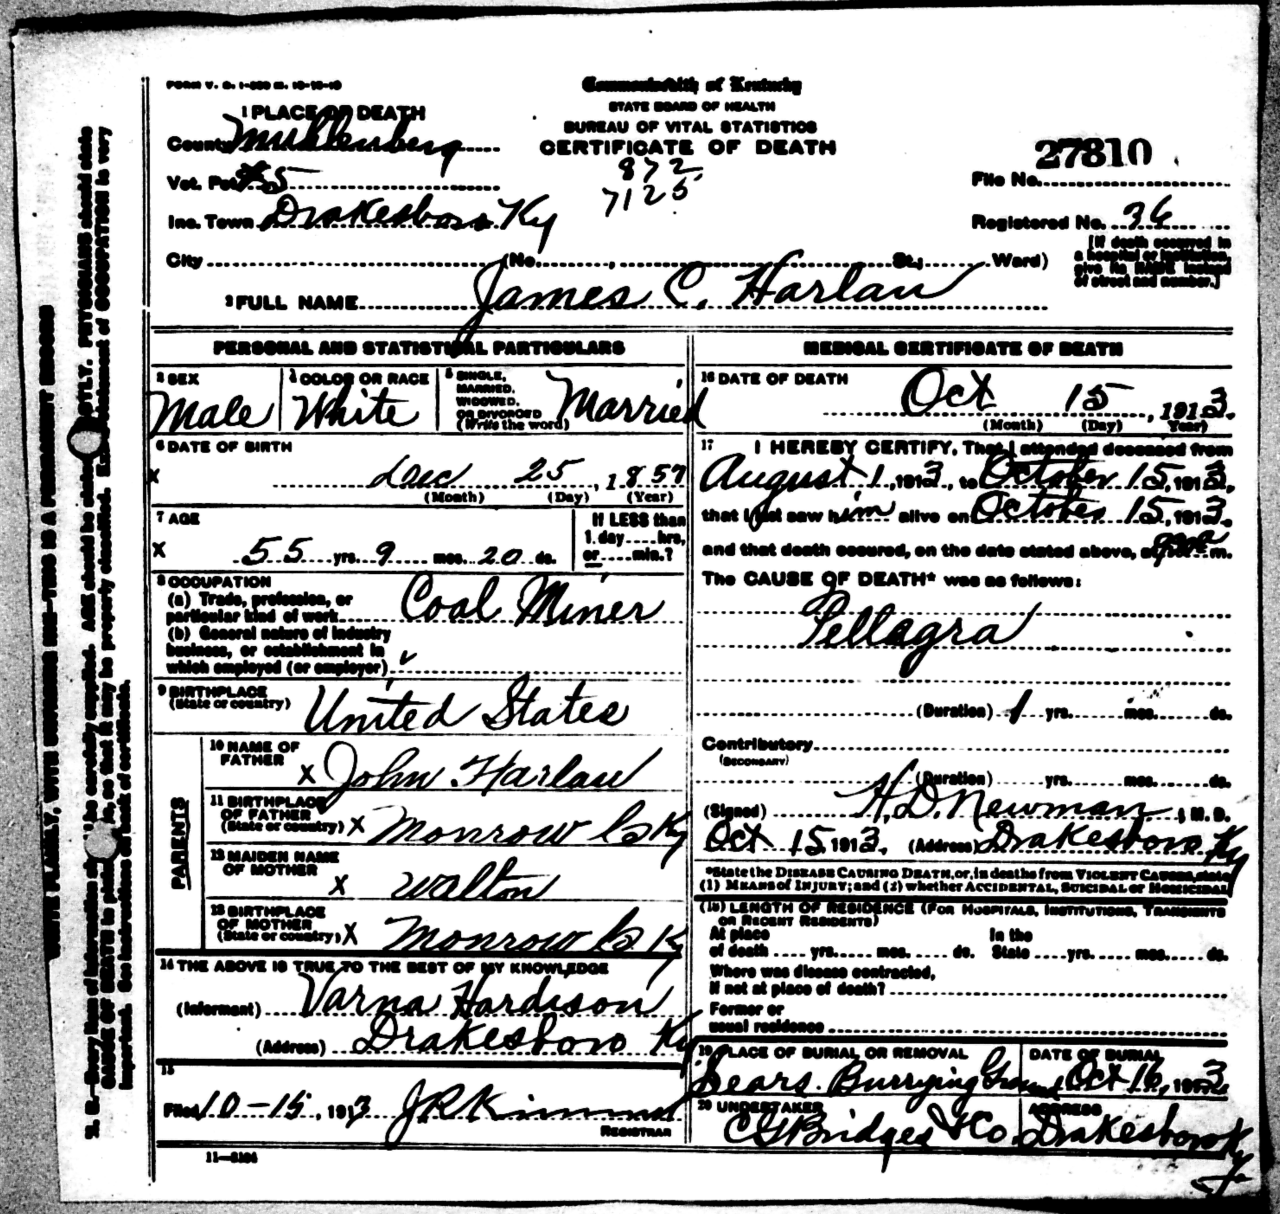 FORM V. S. 1-
Commonwealth of Kentucky
STATE BOARD OF HEALTH
BUREAU OF VITAL STATISTICS
CERTIFICATE OF DEATH
872
7125
1 PLACE OF DEATH
County Muhlenberg
Vot. Pct. #5
Inc. Town Drakesboro Ky
City (No. , St.; Ward)
27810
File No.
Registered No. 36
[If death occurred in
a hospital or institution,
give its NAME instead
of street and number.]
2 FULL NAME James C. Harlan
PERSONAL AND STATISTICAL PARTICULARS
3 SEX
Male
4 COLOR OR RACE
White
5 SINGLE,
MARRIED,
WIDOWED,
OR DIVORCED
(Write the word)
Married
6 DATE OF BIRTH
X Dec 25, 1857
(Month) (Day) (Year)
7 AGE
X 55 yrs. 9 mos. 20 ds.
If LESS than
1 day hrs,
or min.?
8 OCCUPATION
(a) Trade, profession, or
particular kind of work Coal Miner
(b) General nature of industry
business, or establishment in
which employed (or employer)
9 BIRTHPLACE
(State or country) United States
PARENTS
10 NAME OF
FATHER X John Harlan
11 BIRTHPLACE
OF FATHER
(State or country) X Monrow Co Ky
12 MAIDEN NAME
OF MOTHER X Walton
13 BIRTHPLACE
OF MOTHER
(State or country) X Monrow Co Ky
14 THE ABOVE IS TRUE TO THE BEST OF MY KNOWLEDGE
(Informant) Varna Hardison
(Address) Drakesboro Ky
15
Filed 10-15, 1913 J.R. Kimmel
REGISTRAR
11-
MEDICAL CERTIFICATE OF DEATH
16 DATE OF DEATH
Oct 15, 1913.
(Month) (Day) (Year)
17 I HEREBY CERTIFY, That I attended deceased from
August 1, 1913, to October 15, 1913,
that I last saw him alive on October 15, 1913.
and that death occured, on the date stated above, at m.
The CAUSE OF DEATH* was as follows:
Pellagra
(Duration) 1 yrs. mos. ds.
Contributory
(SECONDARY)
(Duration) yrs. mos. ds.
(Signed) H.D. Newman, M. D.
Oct 15, 1913. (Address) Drakesboro Ky
*State the DISEASE CAUSING DEATH, or, in deaths from VIOLENT CAUSES, state
(1) MEANS OF INJURY; and (2) whether ACCIDENTAL, SUICIDAL or HOMICIDAL
(18) LENGTH OF RESIDENCE (FOR HOSPITALS, INSTITUTIONS, TRANSIENTS
OR RECENT RESIDENTS)
At place In the
of death yrs. mos. ds. State yrs. mos. ds.
Where was disease contracted,
If not at place of death?
Former or
usual residence
19 PLACE OF BURIAL OR REMOVAL
Sears Burrying Ground
DATE OF BURIAL
Oct 16, 1913
20 UNDERTAKER
C G Bridges & Co.
ADDRESS
Drakesboro Ky
WRITE PLAINLY, WITH UNFADING INK—THIS IS A PERMANENT RECORD
N. B.—Every item of information should be carefully supplied. AGE should be stated EXACTLY. PHYSICIANS should state
CAUSE OF DEATH in plain terms, so that it may be properly classified. Exact statement of OCCUPATION is very
important. See instructions on back of certificate.